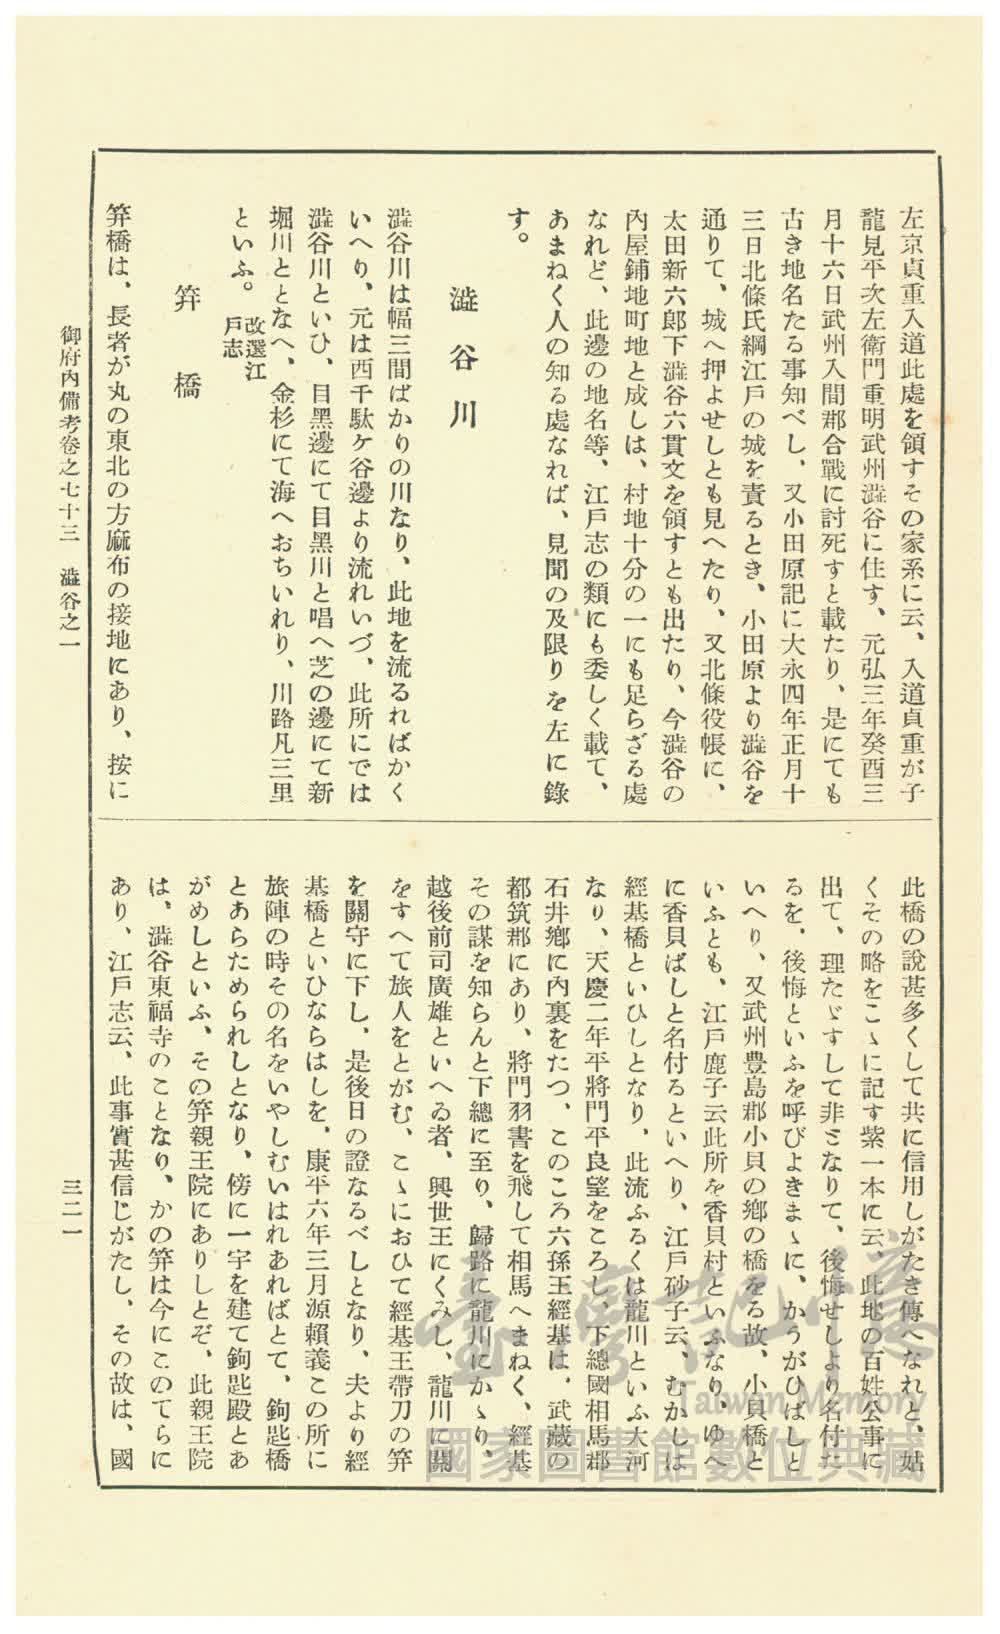 左京貞重入道此處を領すその家系に云、入道貞重が子
龍見平次左衞門重明武州澁谷に住す、元弘三年癸酉三
月十六日武州入間郡合戰に討死すと載たり、是にても
古き地名たる事知べし、又小田原記に大永四年正月十
三日北條氏綱江戸の城を責るとき、小田原より澁谷を
通りて、城へ押よせしとも見へたり、又北條役帳に、
太田新六郎下澁谷六貫文を領すとも出たり、今澁谷の
內屋鋪地町地と成しは、村地十分の一にも足らざる處
なれど、此邊の地名等、江戸志の類にも委しく載て、
あまねく人の知る處なれば、見聞の及限りを左に錄
す。
澁谷川
澁谷川は幅三間ばかりの川なり、此地を流るればかく
いへり、元は西千駄ケ谷邊より流れいづ、此所にでは
澁谷川といひ、目黑邊にて目黑川と唱へ芝の邊にて新
堀川ととなへ、金杉にて海へおちいれり、川路凡三里
といふ。改選江
戸志
笄橋
笄橋は、長者が丸の東北の方麻布の接地にあり、按に
此橋の說甚多くして共に信用しがたき傳へなれと、姑
くその略をこゝに記す紫一本に云、此地の百姓公事に
出て、理たゞすして非ミなりて、後悔せしより名付た
るを、後悔といふを呼びよきまゝに、かうがひばしと
いへり、又武州豊島郡小貝の鄕の橋をる故、小貝橋と
いふとも、江戸鹿子云此所を香貝村といふなり、ゆへ
に香貝ばしと名付るといへり、江戸砂子云、むかしは
經基橋といひしとなり、此流ふるくは龍川といふ大河
なり、天慶二年平將門平良望をころし、下總國相馬郡
石井鄕に內裏をたつ、このころ六孫王經基は、武藏の
都筑郡にあり、將門羽書を飛して相馬へまねく、經基
その謀を知らんと下總に至り、歸路に龍川にかゝり、
越後前司廣雄といへゐ者、興世王にくみし、龍川に關
をすへて旅人をとがむ、こゝにおひて經基王帶刀の笄
を關守に下し、是後日の證なるべしとなり、夫より經
基橋といひならはしを、康平六年三月源賴義この所に
旅陣の時その名をいやしむいはれあればとて、鉤匙橋
とあらためられしとなり、傍に一宇を建て鉤匙殿とあ
がめしといふ、その笄親王院にありしとぞ、此親王院
は、澁谷東福寺のことなり、かの笄は今にこのてらに
あり、江戸志云、此事實甚信じがたし、その故は、國
御府內備考卷之七十三　澁谷之一
三二一
臺灣記憶
Taiwan Memory
國家圖書館數位典藏